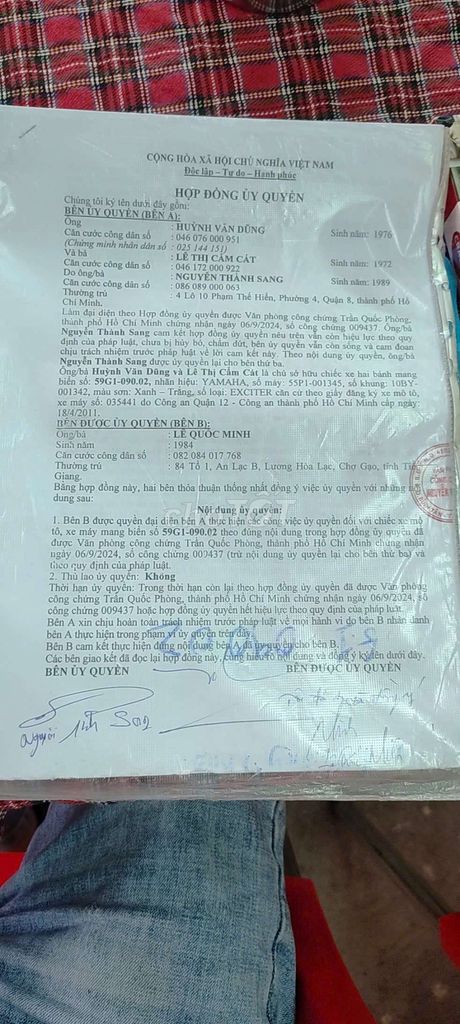 CỘNG HÒA XÃ HỘI CHỦ NGHĨA VIỆT NAM
Độc lập – Tự do – Hạnh phúc
HỢP ĐỒNG ỦY QUYỀN
Chúng tôi ký tên dưới đây gồm:
BÊN ỦY QUYỀN (BÊN A):
Ông : HUỲNH VĂN DŨNG Sinh năm: 1976
Căn cước công dân số : 046 076 000 951
(Chứng minh nhân dân số : 025 144 151)
Và bà : LÊ THỊ CẨM CÁT Sinh năm: 1972
Căn cước công dân số : 046 172 000 922
Do ông/bà : NGUYỄN THÀNH SANG Sinh năm: 1989
Căn cước công dân số : 086 089 000 063
Thường trú : 4 Lô 10 Phạm Thế Hiển, Phường 4, Quận 8, thành phố Hồ
Chí Minh.
Làm đại diện theo Hợp đồng ủy quyền được Văn phòng công chứng Trần Quốc Phòng,
thành phố Hồ Chí Minh chứng nhận ngày 06/9/2024, số công chứng 009437. Ông/bà
Nguyễn Thành Sang cam kết hợp đồng ủy quyền nêu trên vẫn còn hiệu lực theo quy
định của pháp luật, chưa bị hủy bỏ, chấm dứt, bên ủy quyền vẫn còn sống và cam đoan
chịu trách nhiệm trước pháp luật về lời cam kết này. Theo nội dung ủy quyền, ông/bà
Nguyễn Thành Sang được ủy quyền lại cho bên thứ ba.
Ông/bà Huỳnh Văn Dũng và Lê Thị Cẩm Cát là chủ sở hữu chiếc xe hai bánh mang
biển số: 59G1-090.02, nhãn hiệu: YAMAHA, số máy: 55P1-001345, số khung: 10BY-
001342, màu sơn: Xanh – Trắng, số loại: EXCITER căn cứ theo giấy đăng ký xe mô tô,
xe máy số: 035441 do Công an Quận 12 - Công an thành phố Hồ Chí Minh cấp ngày
18/4/2011.
BÊN ĐƯỢC ỦY QUYỀN (BÊN B):
Ông/bà : LÊ QUỐC MINH
Sinh năm : 1984
Căn cước công dân số : 082 084 017 768
Thường trú : 84 Tổ 1, An Lạc B, Lương Hòa Lạc, Chợ Gạo, tỉnh Tiền
Giang.
Bằng hợp đồng này, hai bên thỏa thuận thống nhất đồng ý việc ủy quyền với những nội
dung sau:
Nội dung ủy quyền:
1. Bên B được quyền đại diện bên A thực hiện các công việc ủy quyền đối với chiếc xe mô
tô, xe máy mang biển số 59G1-090.02 theo đúng nội dung trong hợp đồng ủy quyền đã
được Văn phòng công chứng Trần Quốc Phòng, thành phố Hồ Chí Minh chứng nhận
ngày 06/9/2024, số công chứng 009437 (trừ nội dung ủy quyền lại cho bên thứ ba) và
theo quy định của pháp luật.
2. Thù lao ủy quyền: Không
Thời hạn ủy quyền: Trong thời hạn còn lại theo hợp đồng ủy quyền đã được Văn phòng
công chứng Trần Quốc Phòng, thành phố Hồ Chí Minh chứng nhận ngày 06/9/2024, số
công chứng 009437 hoặc hợp đồng ủy quyền hết hiệu lực theo quy định của pháp luật.
Bên A xin chịu hoàn toàn trách nhiệm trước pháp luật về mọi hành vi do bên B nhân danh
bên A thực hiện trong phạm vi ủy quyền trên.
Bên B cam kết thực hiện đúng nội dung bên A ủy quyền cho bên B.
Các bên giao kết đã đọc lại hợp đồng này, cùng hiểu rõ nội dung và đồng ý ký tên dưới đây.
BÊN ỦY QUYỀN BÊN ĐƯỢC ỦY QUYỀN
Sang
Minh